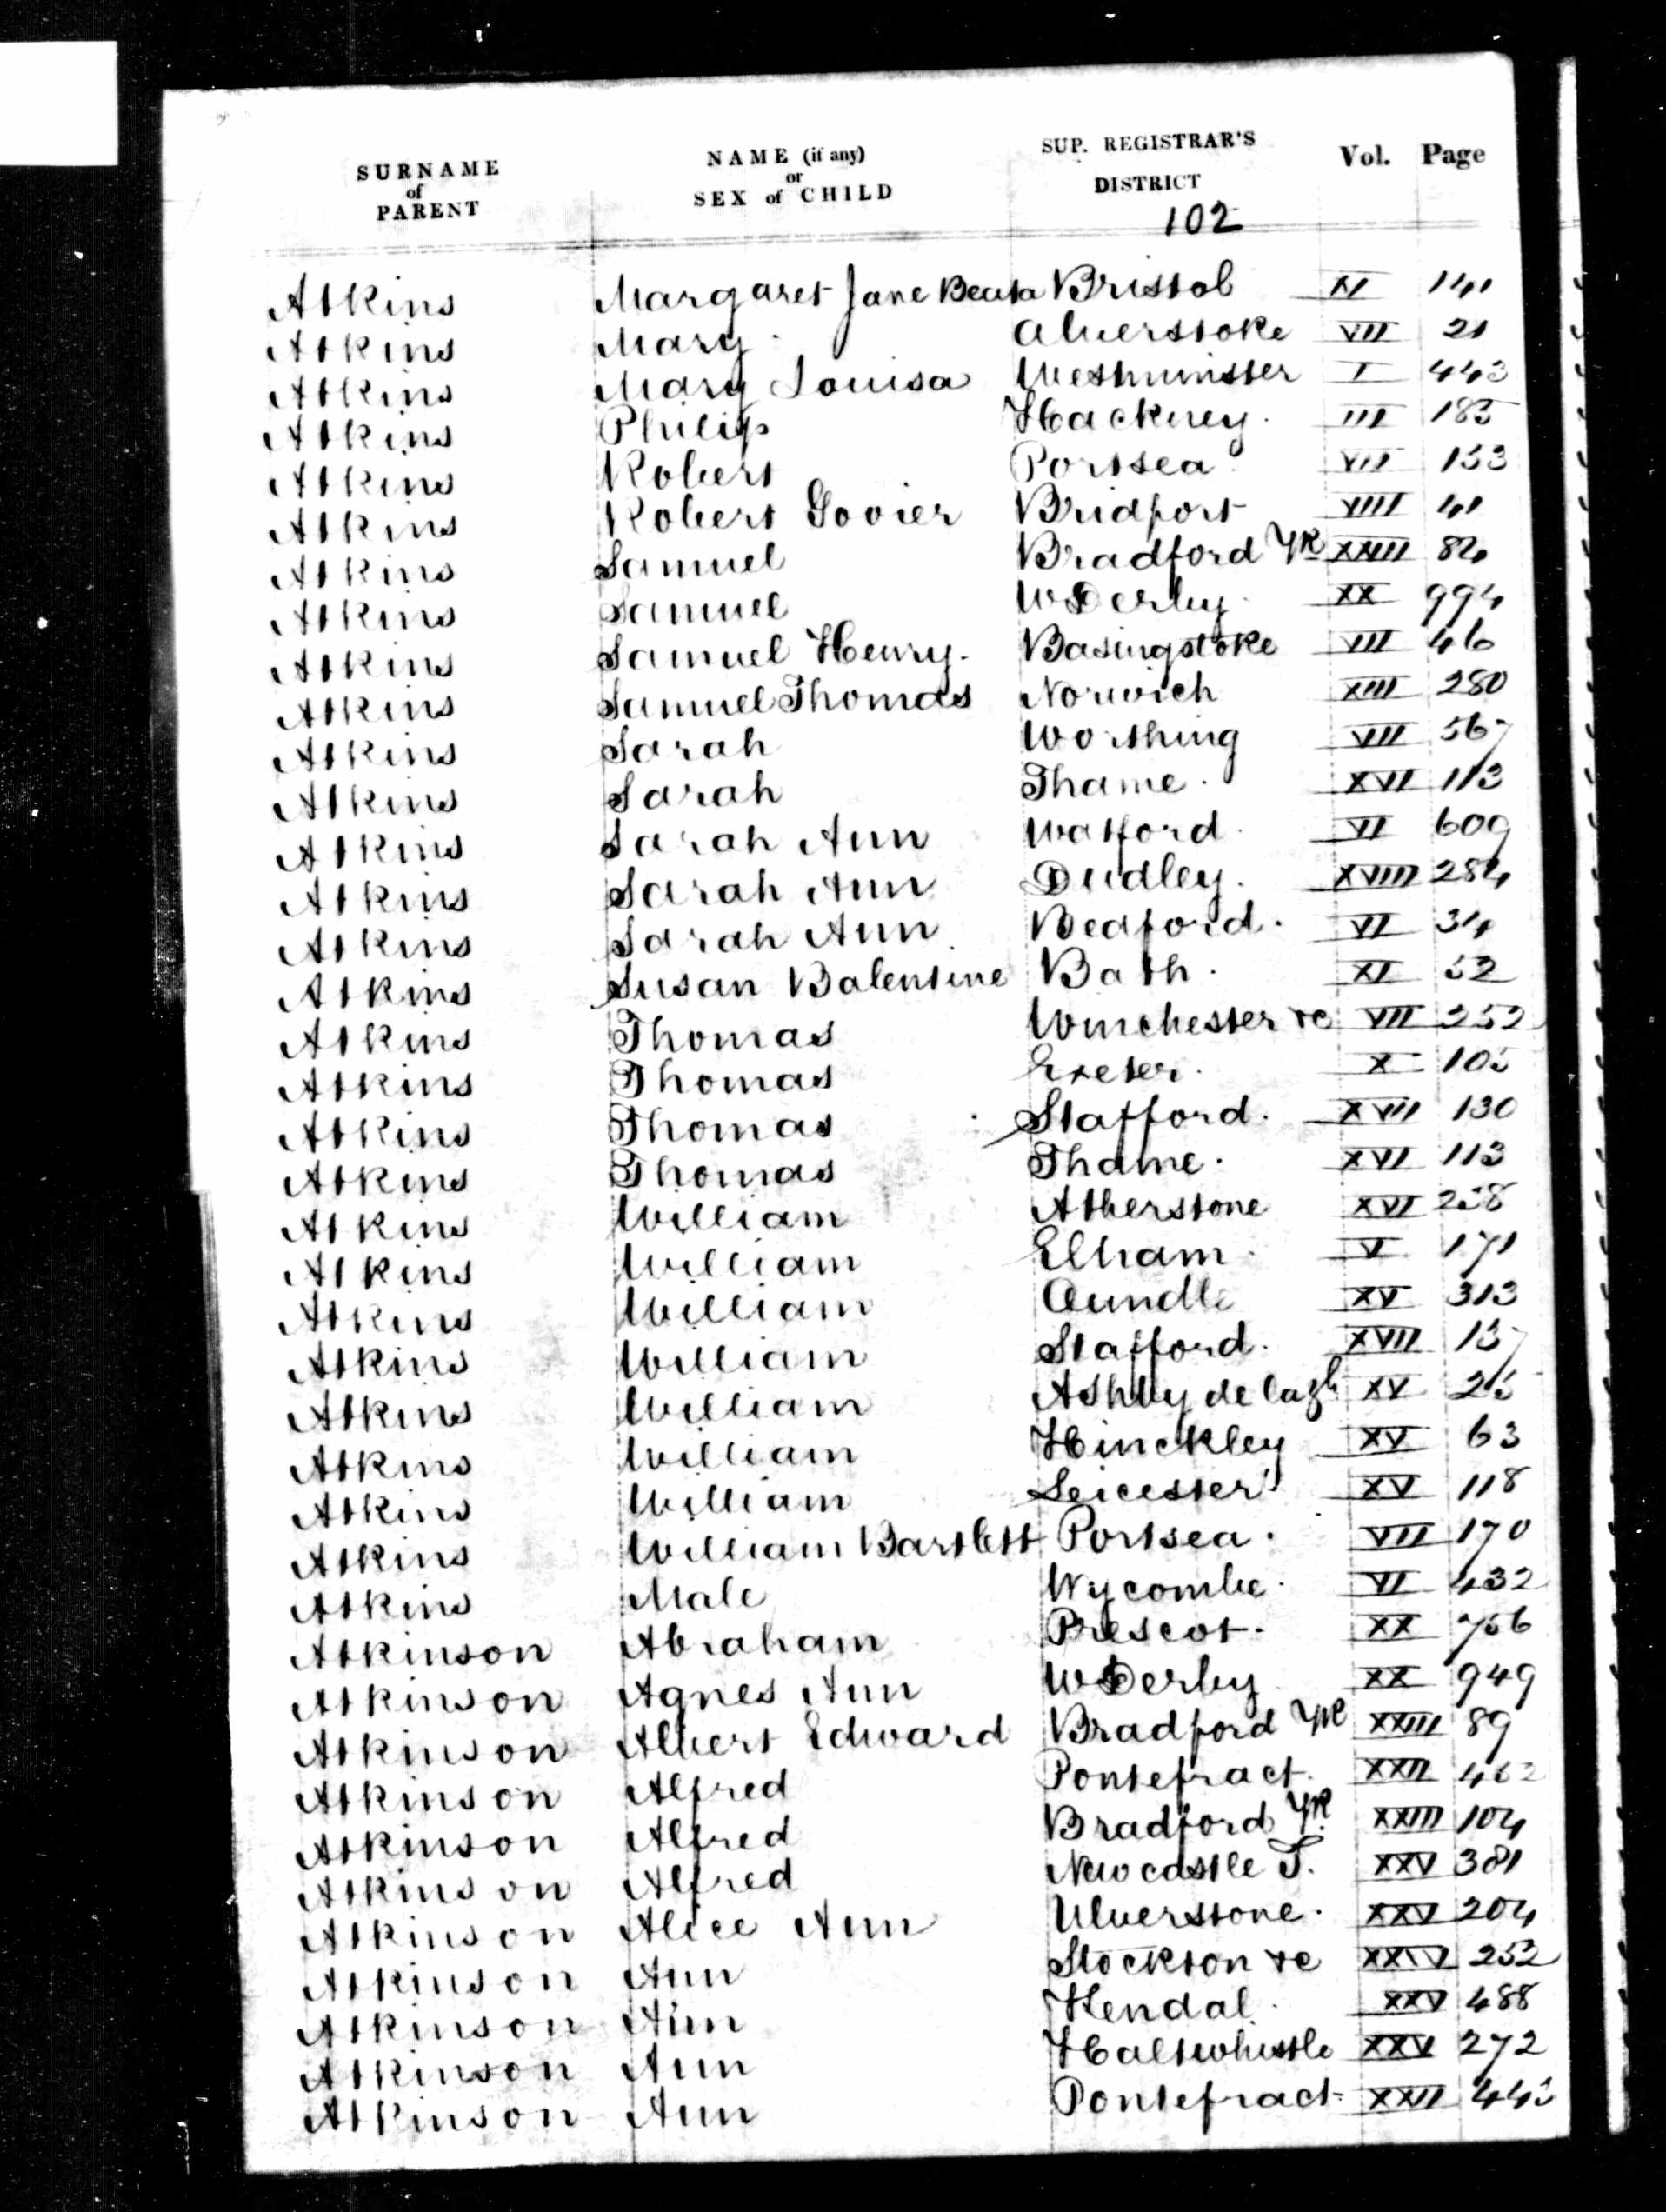 SURNAME of PARENT NAME (if any) or SEX of CHILD SUP. REGISTRAR'S DISTRICT Vol. Page
102
Atkins Margaret Jane Beata Bristol XI 141
Atkins Mary Alverstoke VII 21
Atkins Mary Louisa Westminster I 443
Atkins Philip Hackney. III 185
Atkins Robert Portsea VII 153
Atkins Robert Govier Bridport VIII 41
Atkins Samuel Bradford Yk XXIII 84
Atkins Samuel W Derby XX 994
Atkins Samuel Henry. Basingstoke VII 46
Atkins Samuel Thomas Norwich XIII 280
Atkins Sarah Worthing VII 567
Atkins Sarah Thame. XVI 113
Atkins Sarah Ann Watford. VI 609
Atkins Sarah Ann Dudley. XVIII 284
Atkins Sarah Ann Bedford. VI 34
Atkins Susan Balentine Bath. XI 52
Atkins Thomas Winchester &c VII 252
Atkins Thomas Exeter. X 105
Atkins Thomas Stafford. XVII 130
Atkins Thomas Thame. XVI 113
Atkins William Atherstone XVI 258
Atkins William Elham V 171
Atkins William Oundle XV 313
Atkins William Stafford. XVII 157
Atkins William Ashby de lazh XV 25
Atkins William Hinckley XV 63
Atkins William Leicester XV 118
Atkins William Bartlett Portsea. VII 170
Atkins Male Wycombe. VI 432
Atkinson Abraham Prescot. XX 756
Atkinson Agnes Ann W Derby XX 949
Atkinson Albert Edward Bradford Yk XXIII 89
Atkinson Alfred Pontefract. XXII
Atkinson Alfred Bradford Yk XXIII 104
Atkinson Alfred Newcastle T. XXV 381
Atkinson Alice Ann Ulverstone. XXV 204
Atkinson Ann Stockton &c XXIV 252
Atkinson Ann Kendal. XXV 488
Atkinson Ann Haltwhistle XXV 272
Atkinson Ann Pontefract. XXII 443